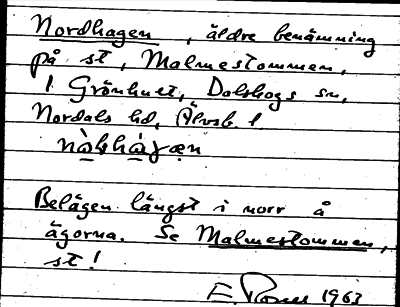 Nordhagen, äldre benämning
på st, Malmestommen,
1 Grönhult, Dalskogs sn,
Nordals hd, Älvsb. l
Belägen längst i norr å
ägorna. Se Malmestommen,
st!
E. 1963